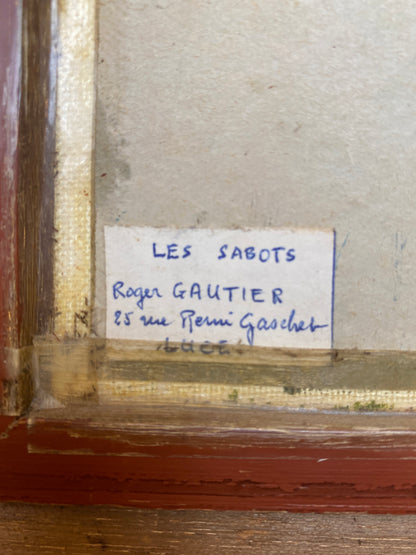 LES SABOTS
Roger GAUTIER
25 rue Remi Gaschet
LUCE